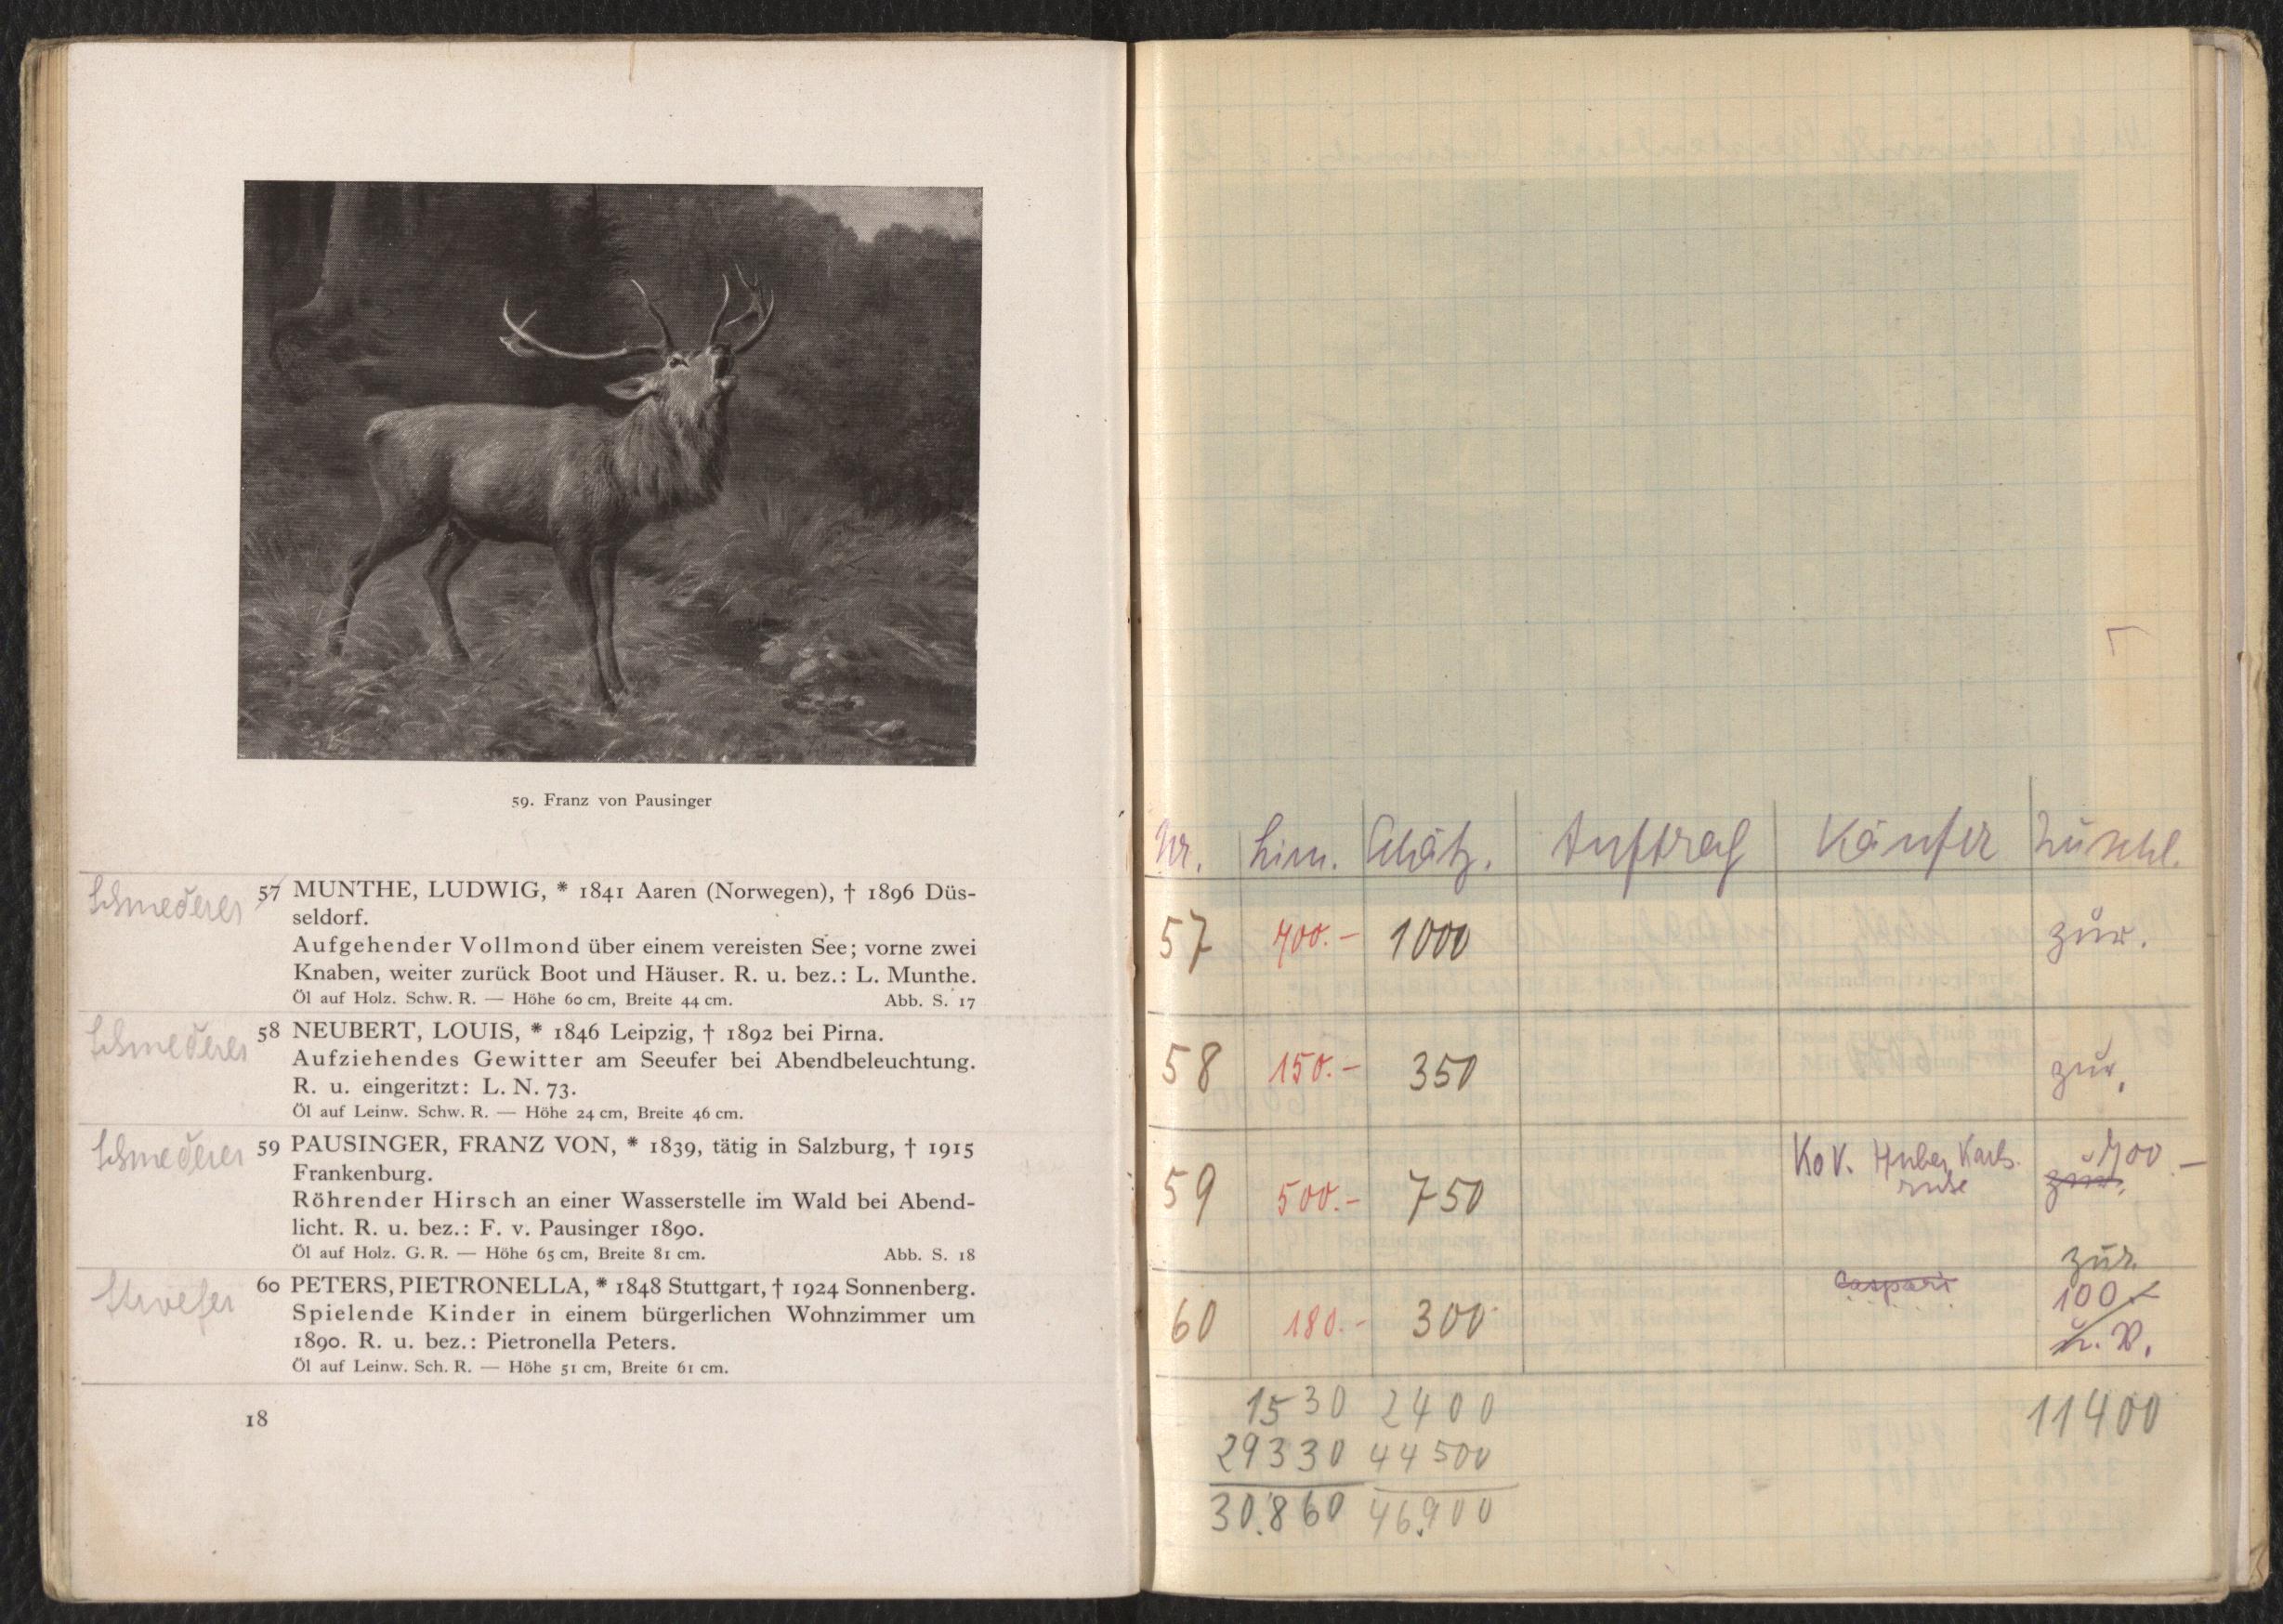 59. Franz von Pausinger
Schmederer
57 MUNTHE, LUDWIG, * 1841 Aaren (Norwegen), † 1896 Düs-
seldorf.
Aufgehender Vollmond über einem vereisten See; vorne zwei
Knaben, weiter zurück Boot und Häuser. R. u. bez.: L. Munthe.
Öl auf Holz. Schw. R. — Höhe 60 cm, Breite 44 cm. Abb. S. 17
Schmederer
58 NEUBERT, LOUIS, * 1846 Leipzig, † 1892 bei Pirna.
Aufziehendes Gewitter am Seeufer bei Abendbeleuchtung.
R. u. eingeritzt: L. N. 73.
Öl auf Leinw. Schw. R. — Höhe 24 cm, Breite 46 cm.
Schmederer
59 PAUSINGER, FRANZ VON, * 1839, tätig in Salzburg, † 1915
Frankenburg.
Röhrender Hirsch an einer Wasserstelle im Wald bei Abend-
licht. R. u. bez.: F. v. Pausinger 1890.
Öl auf Holz. G. R. — Höhe 65 cm, Breite 81 cm. Abb. S. 18
Stroefer
60 PETERS, PIETRONELLA, * 1848 Stuttgart, † 1924 Sonnenberg.
Spielende Kinder in einem bürgerlichen Wohnzimmer um
1890. R. u. bez.: Pietronella Peters.
Öl auf Leinw. Sch. R. — Höhe 51 cm, Breite 61 cm.
18
Nr. Lim. Schätz. Auftrag Käufer Zuschl.
57 700.- 1000 zur.
58 150.- 350 zur.
59 500.- 750 KoV. Huber Karls- 700.-
ruhe zur.
zur.
60 180.- 300 Caspari 100.-
u. V.
1530 2400 11400
29330 44500
30.860 46.900